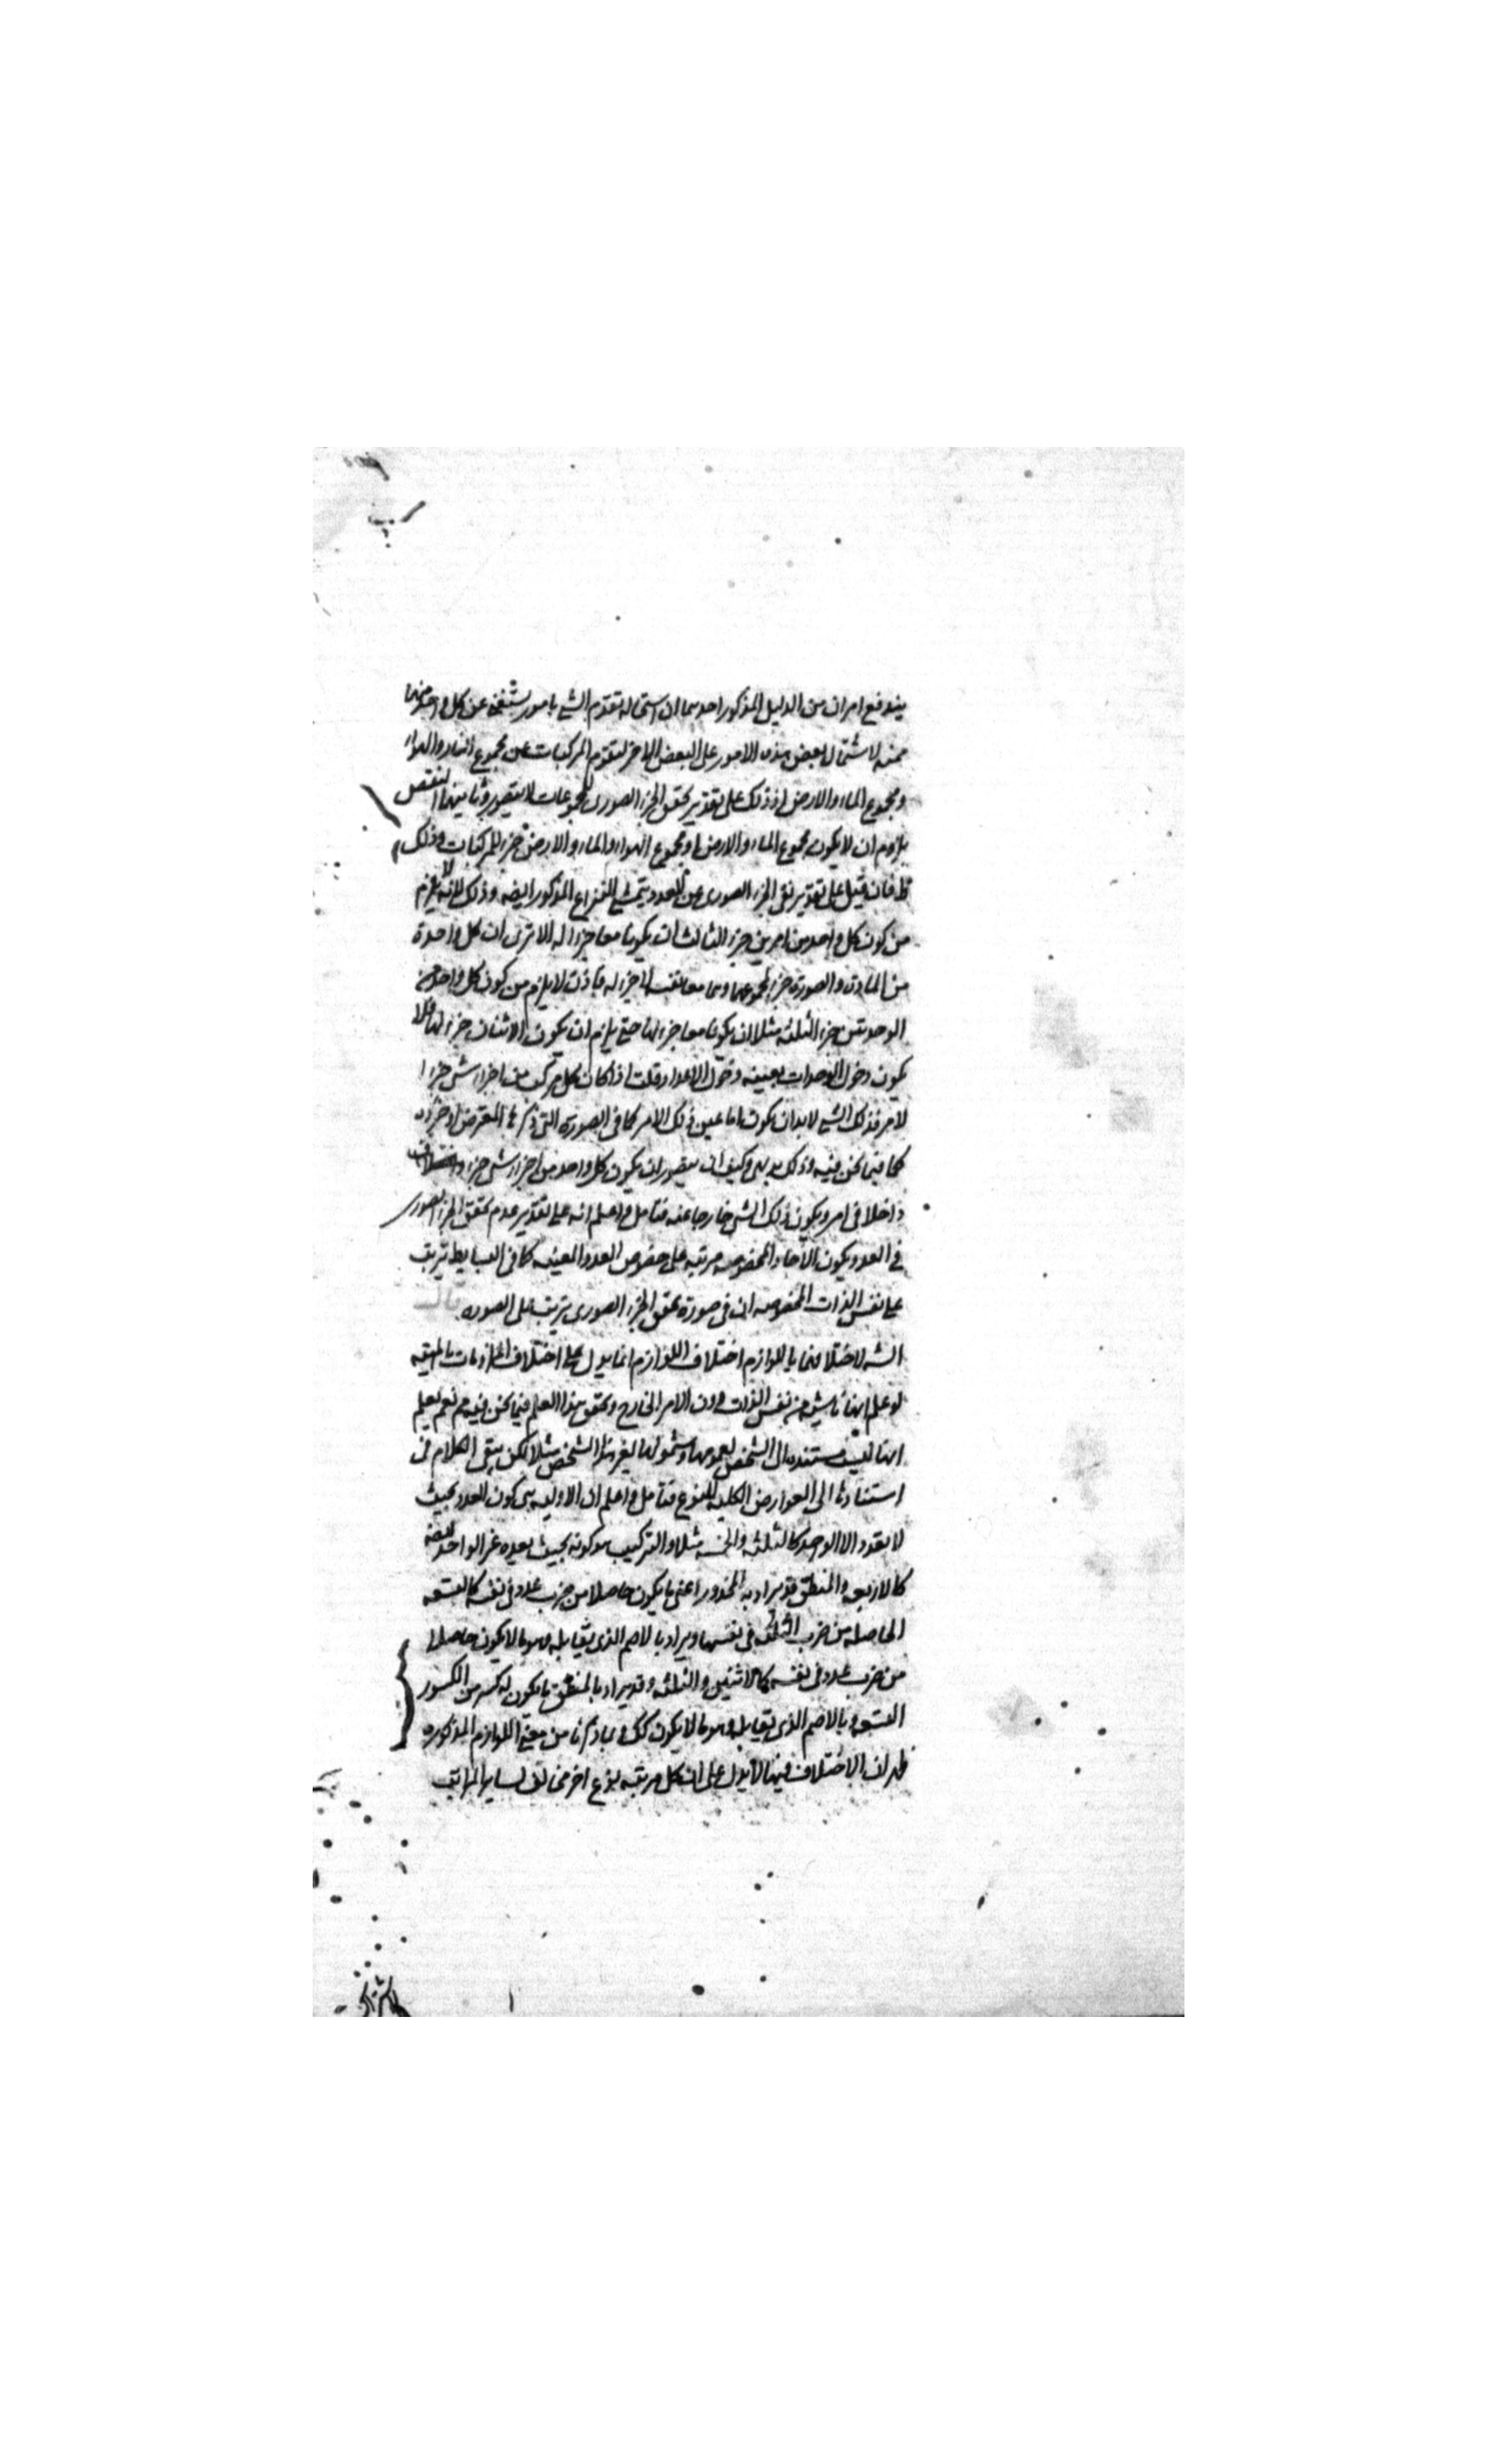 يندفع امران من الدليل المذكور احدهما ان استحالة تقدم الشئ بامور يستغنى عن كل واحد منها
ممنوعه لاشتمال بعض هذه الامور على البعض الاخر لتقوم المركبات عن مجموع النار والهواء
ومجموع الماء والارض اذ ذلك على تقدير تحقق الجزء الصورى للمجموعات لا يتصور وثانيهما النقض
يلزم ان لا يكون مجموع الماء والارض او مجموع الهواء والماء والارض جزء للمركبات وذلك
ظ فان قيل على تقدير نفى الجزء الصورى عن العدد يتمشى النزاع المذكور ايضه وذلك لانه لا يلزم
من كون كل واحد من امرين جزء الثالث ان يكونا معا جزءا له الا ترى ان كل واحدة
من المادة والصورة جزء لمجموعهما وهما معا نفسه لا جزء له فاذن لا يلزم من كون كل واحد من
الوحدتين جزء الثلثه مثلا ان يكونا معا جزء لها حتى يلزم ان يكون الاثنان جزء لها فلا
يكون دخول الوحدات بعينه دخول الاعداد قلت اذا كان كل مركب من اجزاء شئ جزءا
لامر فذلك الشئ لابد ان يكون اما عين ذلك الامر كما فى الصورة التى ذكرها المعترض او جزؤه
كما فيما نحن فيه وذلك بديهى وكيف يتصور ان يكون كل واحد من اجزاء شئ جزء
داخلا فى امر ويكون ذلك الشئ خارجا عنه فتامل واعلم انه على تقدير عدم تحقق الجزء الصورى
فى العدد يكون الآحاد المخصوصه مرتبه على خصوص العدد المعينه كما فى البسايط يترتب
على نفس الذات المخصوصه ان فى صورة تحقق الجزء الصورى يترتب على الصوره قال
الش لاختلافها باللوازم اختلاف اللوازم انما يدل على اختلاف الملزومات بالمهيه
لو علم انها ناشيه من نفس الذات دون الامر الخارج وتحقق هذا العلم فيما نحن فيه م نعم يعلم
انها ليست مستنده الى الشخص لعمومها وشمولها لغير هذا الشخص مثلا لكن يبقى الكلام فى
استنادها الى العوارض الكليه للنوع فتامل واعلم ان الاوليه هى كون العدد بحيث
لا يعده الا الواحد كالثلثه والخمسه مثلا والتركيب هو كونه بحيث يعده غير الواحد ايضه
كالاربعه والمنطق قد يراد به المجذور اعنى ما يكون حاصلا من ضرب عدد فى نفسه كالتسعه
الحاصله من ضرب الثلثه فى نفسها ويراد بالاصم الذى يقابله هو ما لا يكون حاصلا
من ضرب عدد فى نفسه كالاثنين والثلثه وقد يراد بالمنطق ما يكون له كسر من الكسور
التسعه وبالاصم الذى يقابله وهو ما لا يكون كك وبما ذكرنا من معنى اللوازم المذكوره
ظهر ان الاختلاف فيها لا يدل على ان كل مرتبه نوع اخر مخالف لساير المراتب